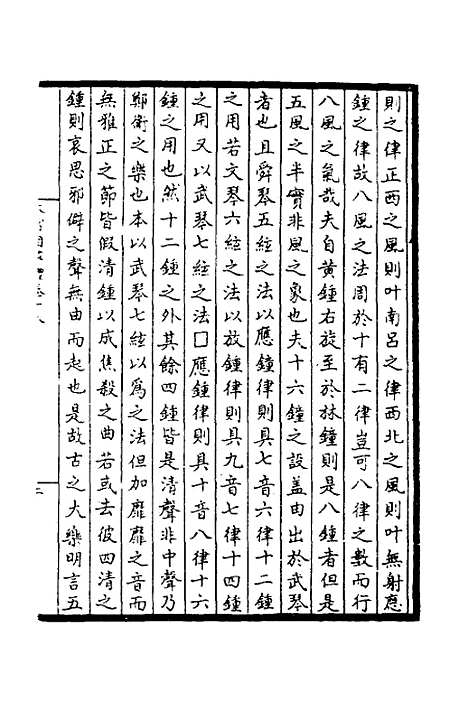 則之律正西之風則叶南呂之律西北之風則叶無射應
鍾之律故八風之法周於十有二律豈可八律之數而行
八風之氣哉夫自黃鍾右旋至於林鐘則是八鍾者但是
五風之半實非風之象也夫十六鐘之設蓋由出於武琴
者也且舜琴五絃之法以應鐘律則具七音六律十二鍾
之用若文琴六絃之法以放鍾律則具九音七律十四鍾
之用又以武琴七絃之法□應鍾律則具十音八律十六
鍾之用也然十二鍾之外其餘四鍾皆是清聲非中聲乃
鄭衛之樂也本以武琴七絃以爲之法但加靡靡之音而
無雅正之節皆假清鍾以成焦殺之曲若或去彼四清之
鍾則哀思邪僻之聲無由而起也是故古之大樂明言五